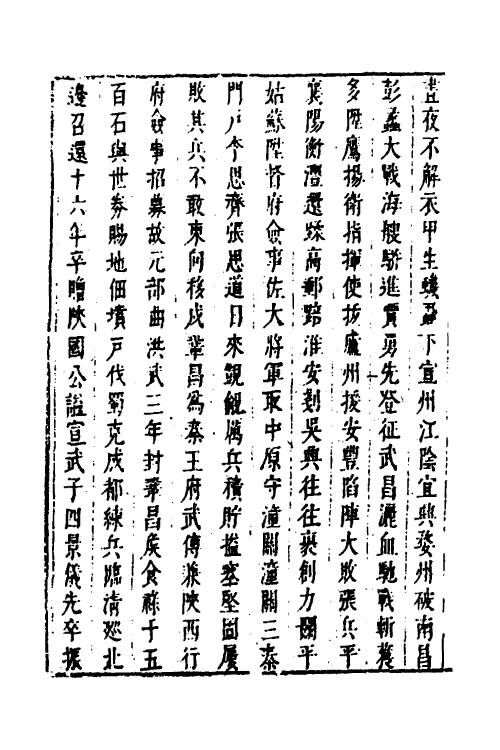 晝夜不解衣甲生蟣蝨下宣州江陰宜興婺州破南昌
彭蠡大戰海艘驕進賈勇先登征武昌灑血馳戰斬獲
多陞鷹揚衛指揮使拔廬州援安豐陷陣大敗張兵平
襄陽衡澧還蹂高郵踣淮安剗吳興往往裹創力鬭平
姑蘇陞督府僉事佐大將軍取中原守潼關潼關三秦
門戶李思齊張思道日來覬覦厲兵積貯搤塞堅固屢
敗其兵不敢東向移戍鞏昌為秦王府武傅兼陝西行
府僉事招募故元部曲洪武三年封鞏昌侯食祿千五
百石與世券賜地佃墳戶伐蜀克成都練兵臨清廵北
邊召還十六年卒贈陝國公諡宣武子四景儀先卒振